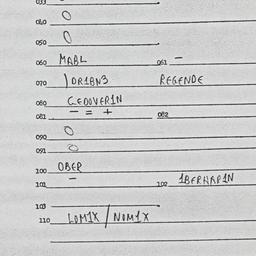 033
040 0
050 0
060 MABL 061 -
070 1DR1BN3 REGENDE
080 C.EDOVER1N
081 - = + 082
090 0
091 0
100 OBER
101 - 102 1BERHAP1N
103
110 LOM1X / NOM1X